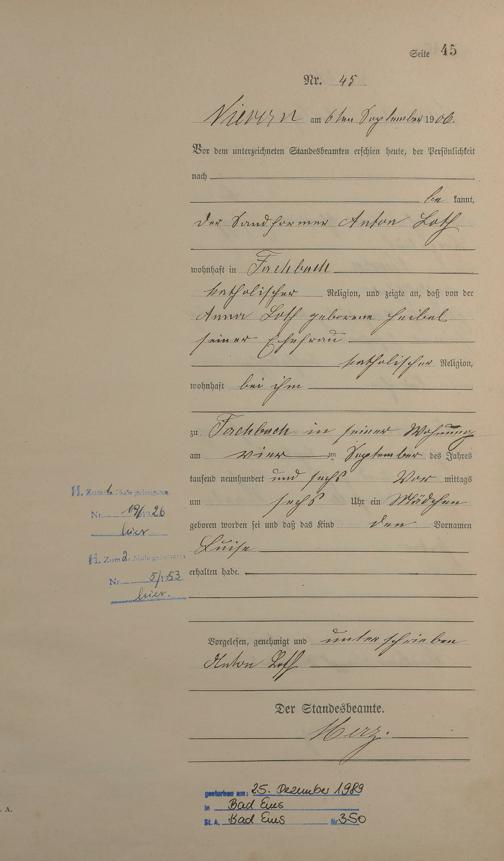 Seite 45
Nr. 45
Nievern am 6ten September 1906.
Vor dem unterzeichneten Standesbeamten erschien heute, der Persönlichkeit
nach
be kannt,
der Sandformer Anton Loth
wohnhaft in Fachbach
katholischer Religion, und zeigte an, daß von der
Anna Loth geborene Heibel
seiner Ehefrau
katholischer Religion,
wohnhaft bei ihm
zu Fachbach in seiner Wohnung
am vier ten September des Jahres
tausend neunhundert und sechs Vor mittags
um sechs Uhr ein Mädchen
geboren worden sei und daß das Kind den Vornamen
Luise
erhalten habe.
Vorgelesen, genehmigt und unterschrieben
Anton Loth
Der Standesbeamte.
Merz.
H. Zum 1. Male geheiratet
Nr. 19/1926
hier
H. Zum 2. Male geheiratet
Nr. 5/1953
hier.
gestorben am: 25. Dezember 1989
in Bad Ems
St. A. Bad Ems Nr. 350
. A.